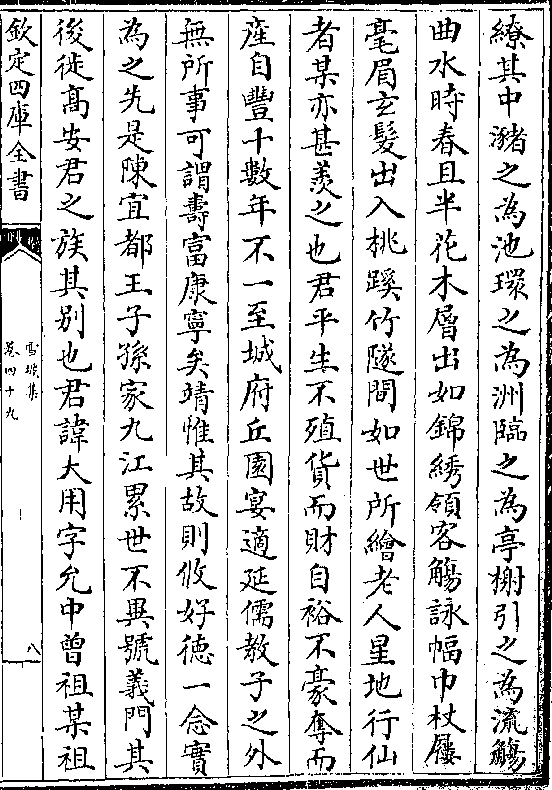 繚其中瀦之為池環之為洲臨之為亭榭引之為流觴
曲水時春且半花木層出如錦綉領客觴詠幅巾杖屨
毫眉玄髮出入桃蹊竹隧間如世所繪老人星地行仙
者某亦甚羨之也君平生不殖貨而財自裕不豪奪而
產自豐十數年不一至城府丘園宴適延儒教子之外
無所事可謂壽富康寧矣靖惟其故則攸好徳一念實
為之先是陳宜都王子孫家九江累世不異號義門其
後徙髙安君之族其别也君諱大用字允中曾祖某祖
欽定四庫全書
雪坡集
卷四十九
八